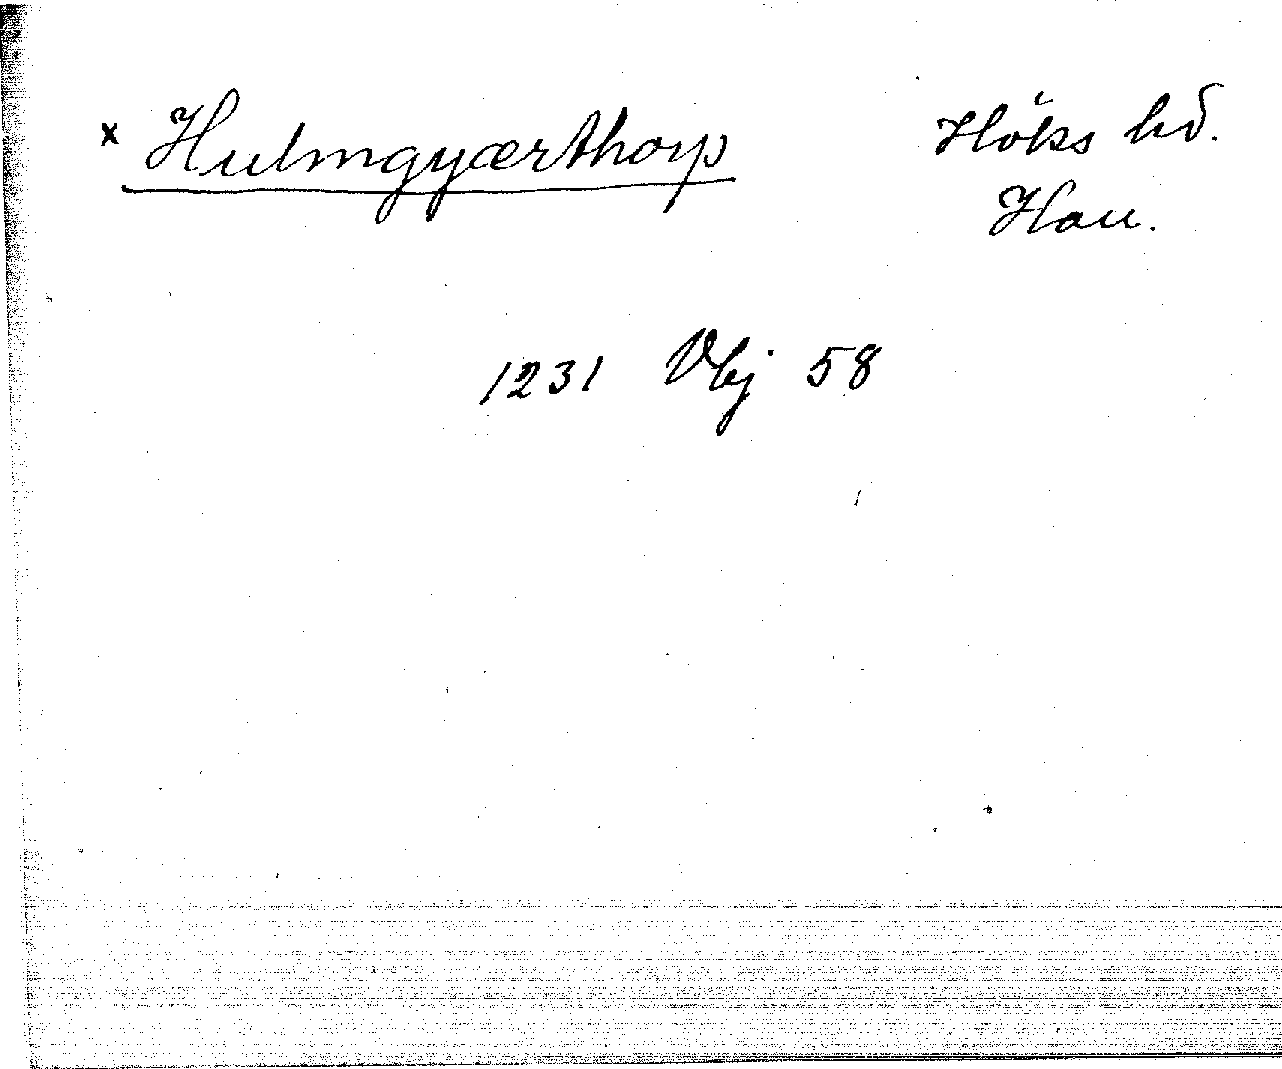 x Hulmgyærthorp
Höks hd.
Hall.
1231 Vbj 58